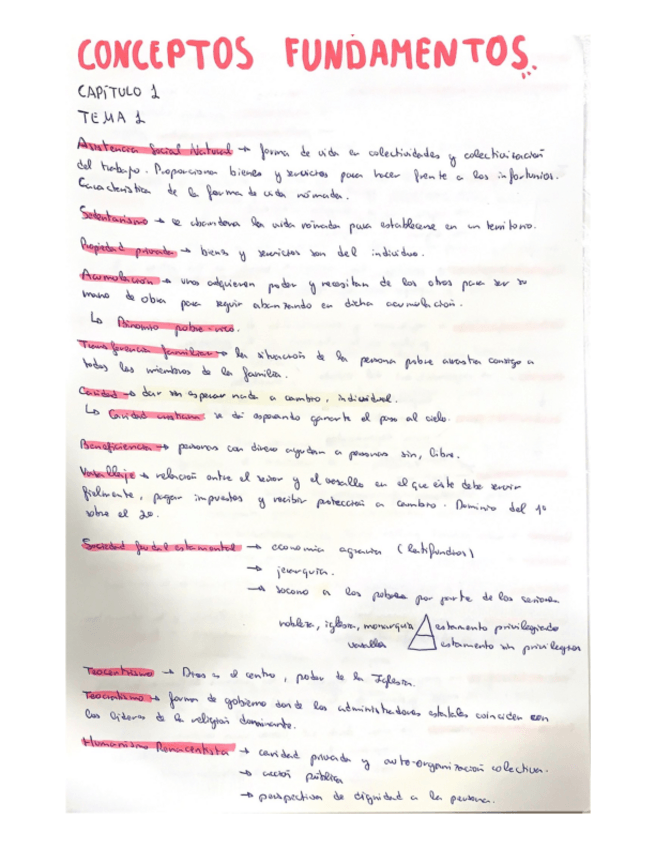 CONCEPTOS FUNDAMENTOS.
CAPÍTULO 1
TEMA 1
Asistencia Social Natural → forma de vida en colectividades y colectivización
del trabajo. Proporciona bienes y servicios para hacer frente a los infortunios.
Característica de la forma de vida nómada.
Sedentarismo → se abandona la vida nómada para establecerse en un territorio.
Propiedad privada → bienes y servicios son del individuo.
Acumulación → unos adquieren poder y necesitan de los otros para ser su
mano de obra para seguir abanzando en dicha acumulación.
↳ Binomio pobre-rico.
Transferencia familiar → la situación de la persona pobre arrastra consigo a
todos los miembros de la familia.
Caridad → dar sin esperar nada a cambio, individual.
↳ Caridad cristiana se da esperando ganarte el paso al cielo.
Beneficiencia → personas con dinero ayudan a personas sin, libre.
Vasallaje → relación entre el señor y el vasallo en el que éste debe servir
fielmente, pagar impuestos y recibir protección a cambio. Dominio del 1º
sobre el 2º.
Sociedad feudal estamental → economía agraria (latifundios)
→ jerarquía.
→ socorro a los pobres por parte de los señores
nobleza, iglesia, monarquía estamento privilegiado
vasallos estamento sin privilegios
Teocentrismo → Dios es el centro, poder de la Iglesia.
→ forma de gobierno donde los administradores estatales coinciden con
los líderes de la religión dominante.
Humanismo Renacentista → caridad privada y auto-organización colectiva.
→ acción pública
→ perspectiva de dignidad a la persona.